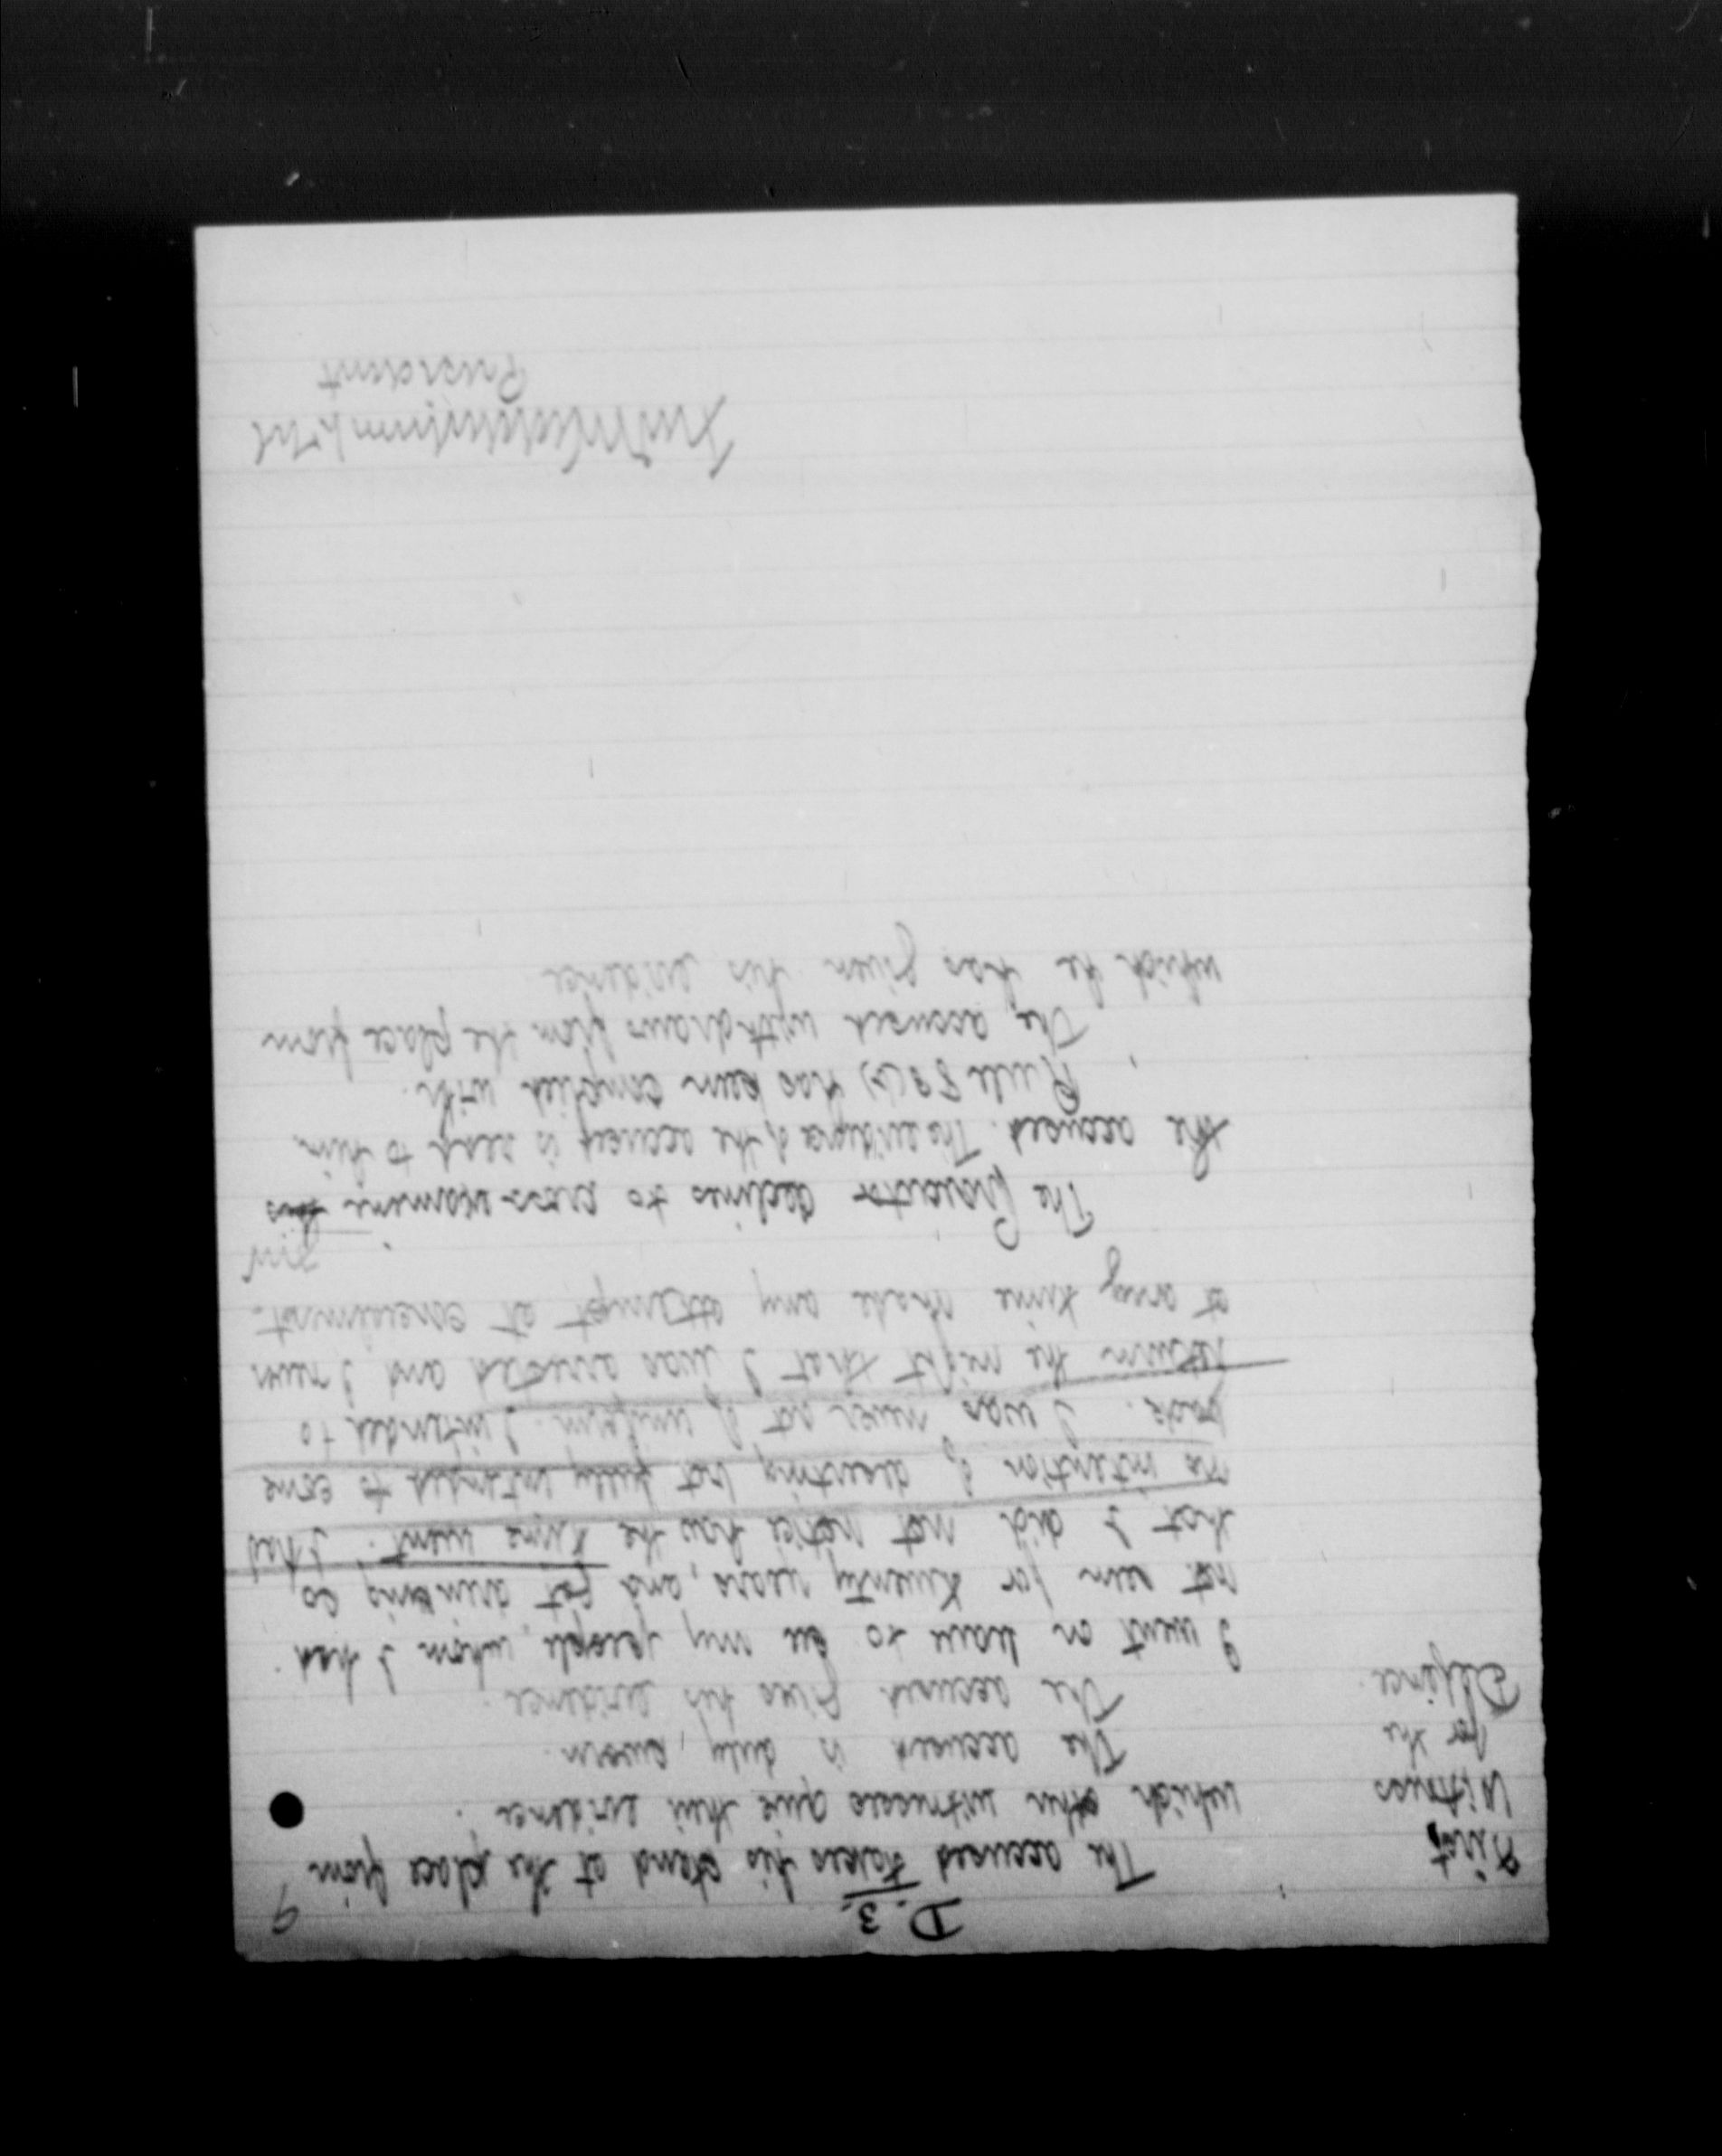 D. 3.
9
First Witness for the Defence.
The accused takes his stand at the place from
which other witnesses give their evidence.
The accused is duly sworn.
The accused gives his evidence.
I went on leave to see my people, whom I had
not seen for twenty years, and got drinking so
that I did not notice how the time went. I had
no intention of deserting but fully intended to come
back. I was never out of uniform. I intended to
return the night that I was arrested and I never
at any time made any attempt at concealment.
The Prosecutor declines to cross-examine
the accused. The evidence of the accused is read to him
Rule 83(2) has been complied with.
The accused withdraws from the place from
which he has given his evidence
President